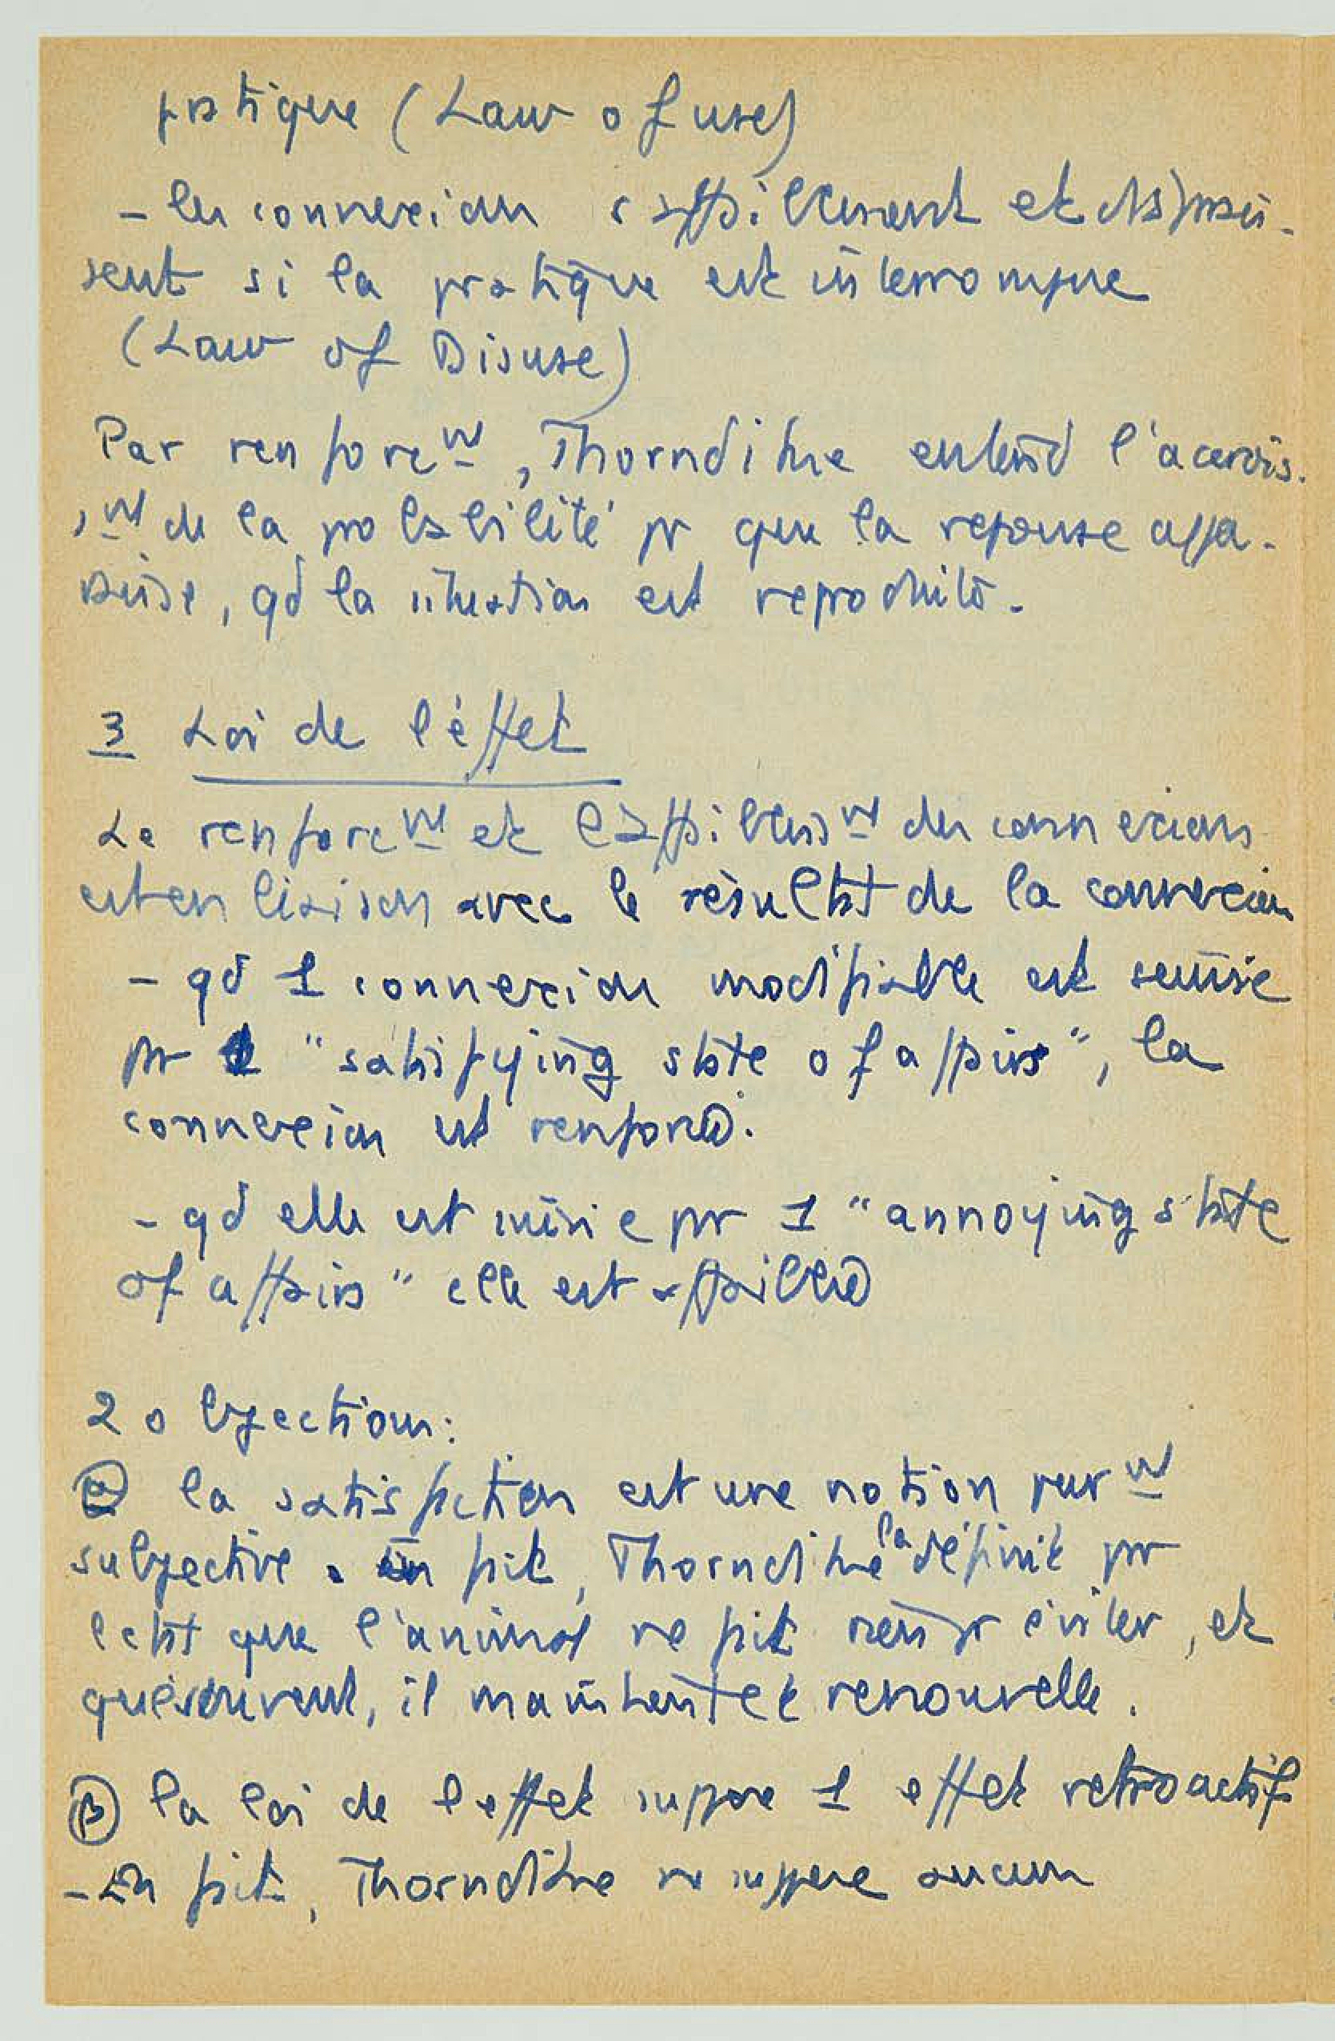 pratique (Law of use)
- les connexions s'affaiblissent et disparais-
sent si la pratique est interrompue
(Law of Disuse)
Par renforcmt, Thorndike entend l'accrois-
smt de la probabilité pr que la réponse appa-
raisse, qd la situation est reproduite.
3 Loi de l'effet
Le renforcmt et l'affaiblissmt des connexions
est en liaison avec le résultat de la connexion
- qd 1 connexion modifiable est suivie
par 1 "satisfying state of affairs", la
connexion est renforcée.
- qd elle est suivie par 1 "annoying state
of affairs" elle est affaiblie
2 objections:
α la satisfaction est une notion purmt
subjective. En fait, Thorndike la définit par
l'état que l'animal ne fait rien pr éviter, et
que souvent, il maintient et renouvelle.
β la loi de l'effet suppose 1 effet rétroactif
- En fait, Thorndike ne suppose aucun